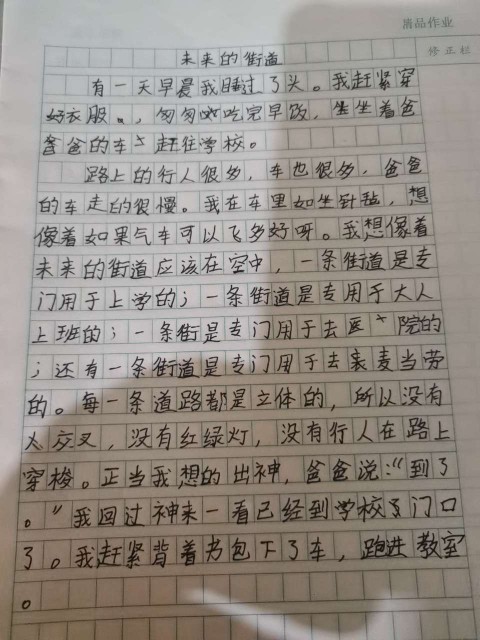 清品作业
修正栏
未来的街道
有一天早晨我睡过了头。我赶紧穿
好衣服。，匆匆吃完早饭，坐坐着爸
爸爸的车赶往学校。
路上的行人很多，车也很多，爸爸
的车走的很慢。我在车里如坐针毡，想
像着如果气车可以飞多好呀。我想像着
未来的街道应该在空中，一条街道是专
门用于上学的；一条街道是专用于大人
上班的；一条街是专门用于去医院的
；还有一条街道是专门用于去麦当劳
的。每一条道路都是立体的，所以没有
交叉，没有红绿灯，没有行人在路上
穿梭。正当我想的出神，爸爸说：“到了
。”我回过神来一看已经到学校门口
了。我赶紧背着书包下了车，跑进教室
。